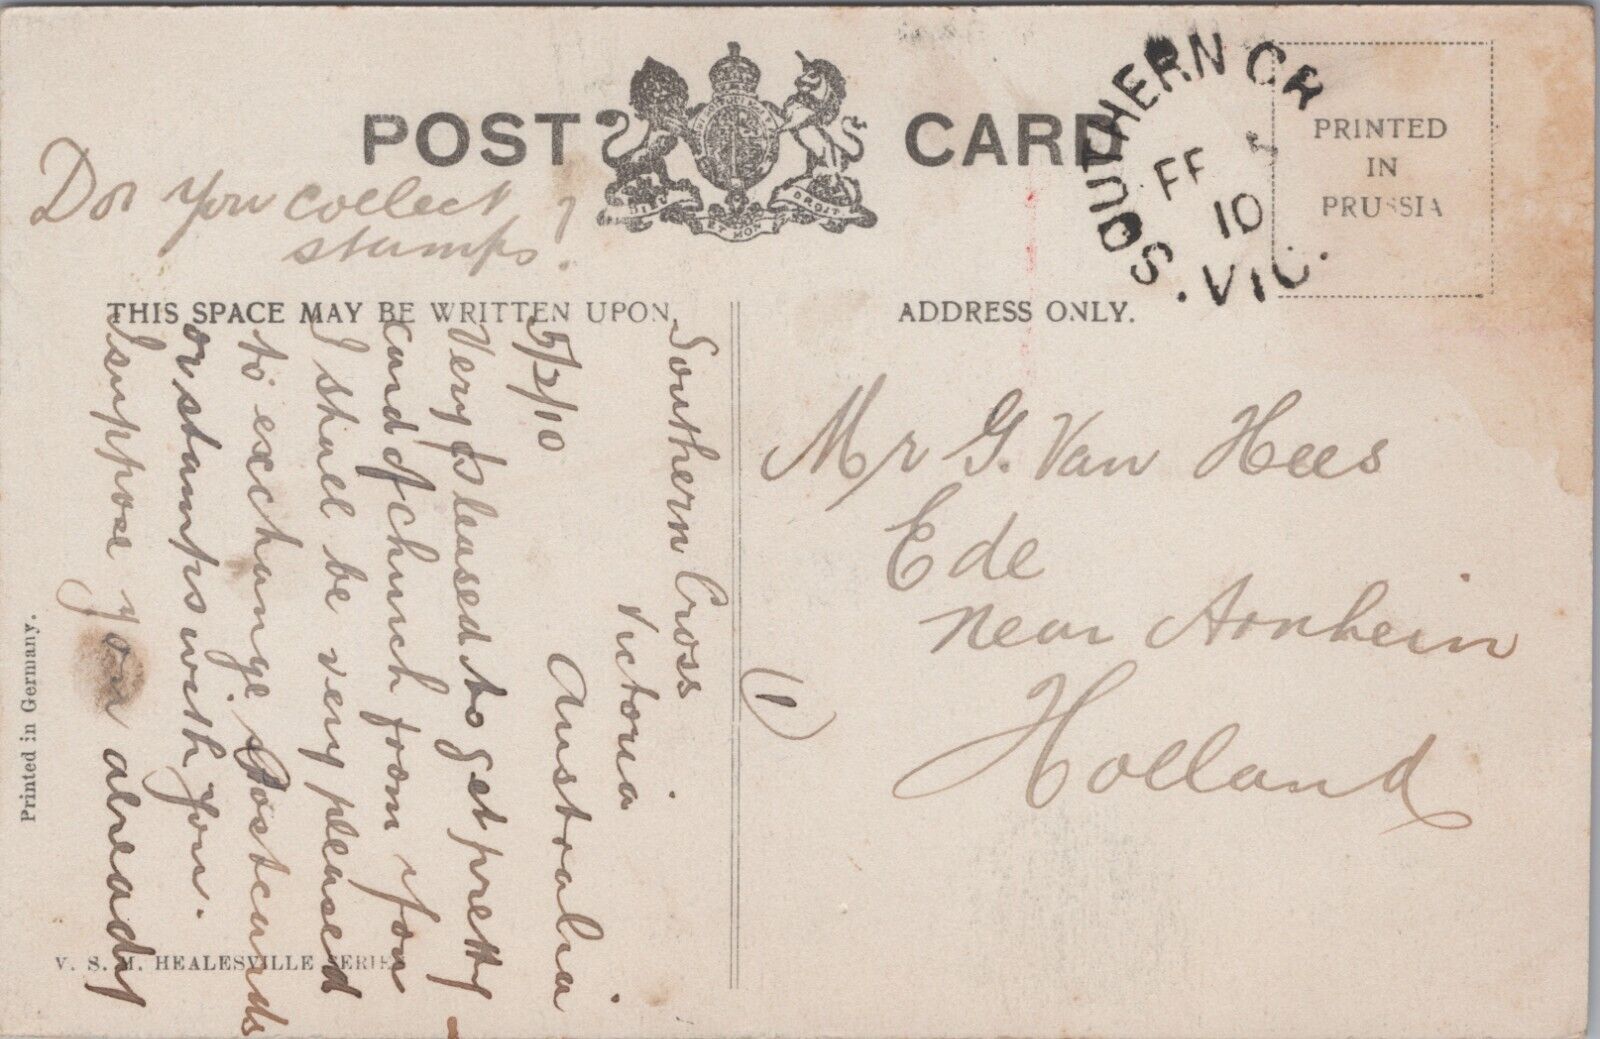 POST CARD
DIEU ET MON DROIT
SOUTHERN CR
FE 5
10
VIC.
PRINTED
IN
PRUSSIA
Do you collect
stamps?
THIS SPACE MAY BE WRITTEN UPON.
ADDRESS ONLY.
Southern Cross
Victoria
Australia
5/2/10
Very pleased to get pretty
card of church from you
I shall be very pleased
to exchange Postcards
or stamps with you.
I suppose you already
(1)
Mr G. Van Hees
Ede
near Arnheim
Holland
Printed in Germany.
V. S. M. HEALESVILLE SERIES